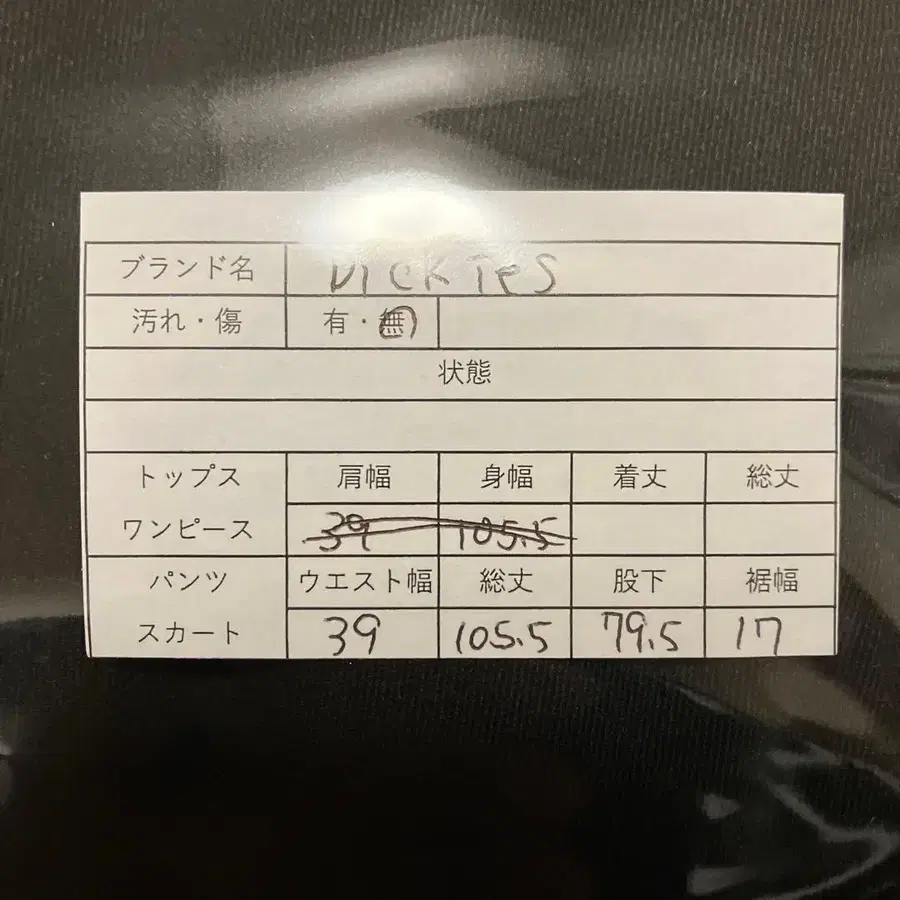 ブランド名 DICKIES
汚れ・傷 有・無
状態
トップス 肩幅 身幅 着丈 総丈
ワンピース 39 105.5
パンツ ウエスト幅 総丈 股下 裾幅
スカート 39 105.5 79.5 17